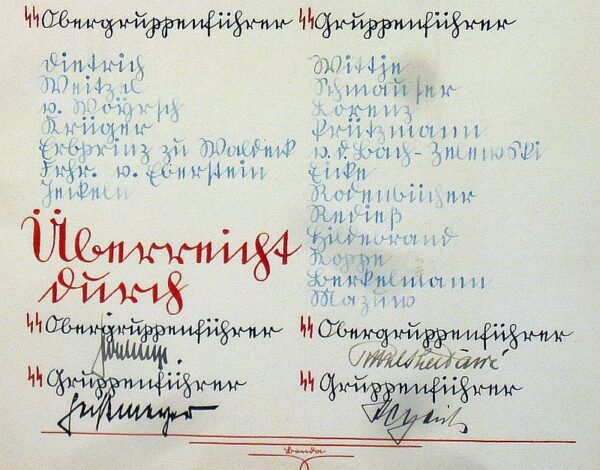 ᛋᛋ Obergruppenführer
Dietrich
Weitzel
v. Woÿrsch
Krüger
Erbprinz zu Waldeck
Frhr. v. Eberstein
Jeckeln
ᛋᛋ Gruppenführer
Wittje
Schmauser
Lorenz
Prützmann
v.d. Bach-Zelewski
Eicke
Rodenbücher
Redieß
Hildebrand
Koppe
Berkelmann
Mazuw
Überreicht
durch
ᛋᛋ Obergruppenführer
ᛋᛋ Obergruppenführer
ᛋᛋ Gruppenführer
Heißmeyer
ᛋᛋ Gruppenführer